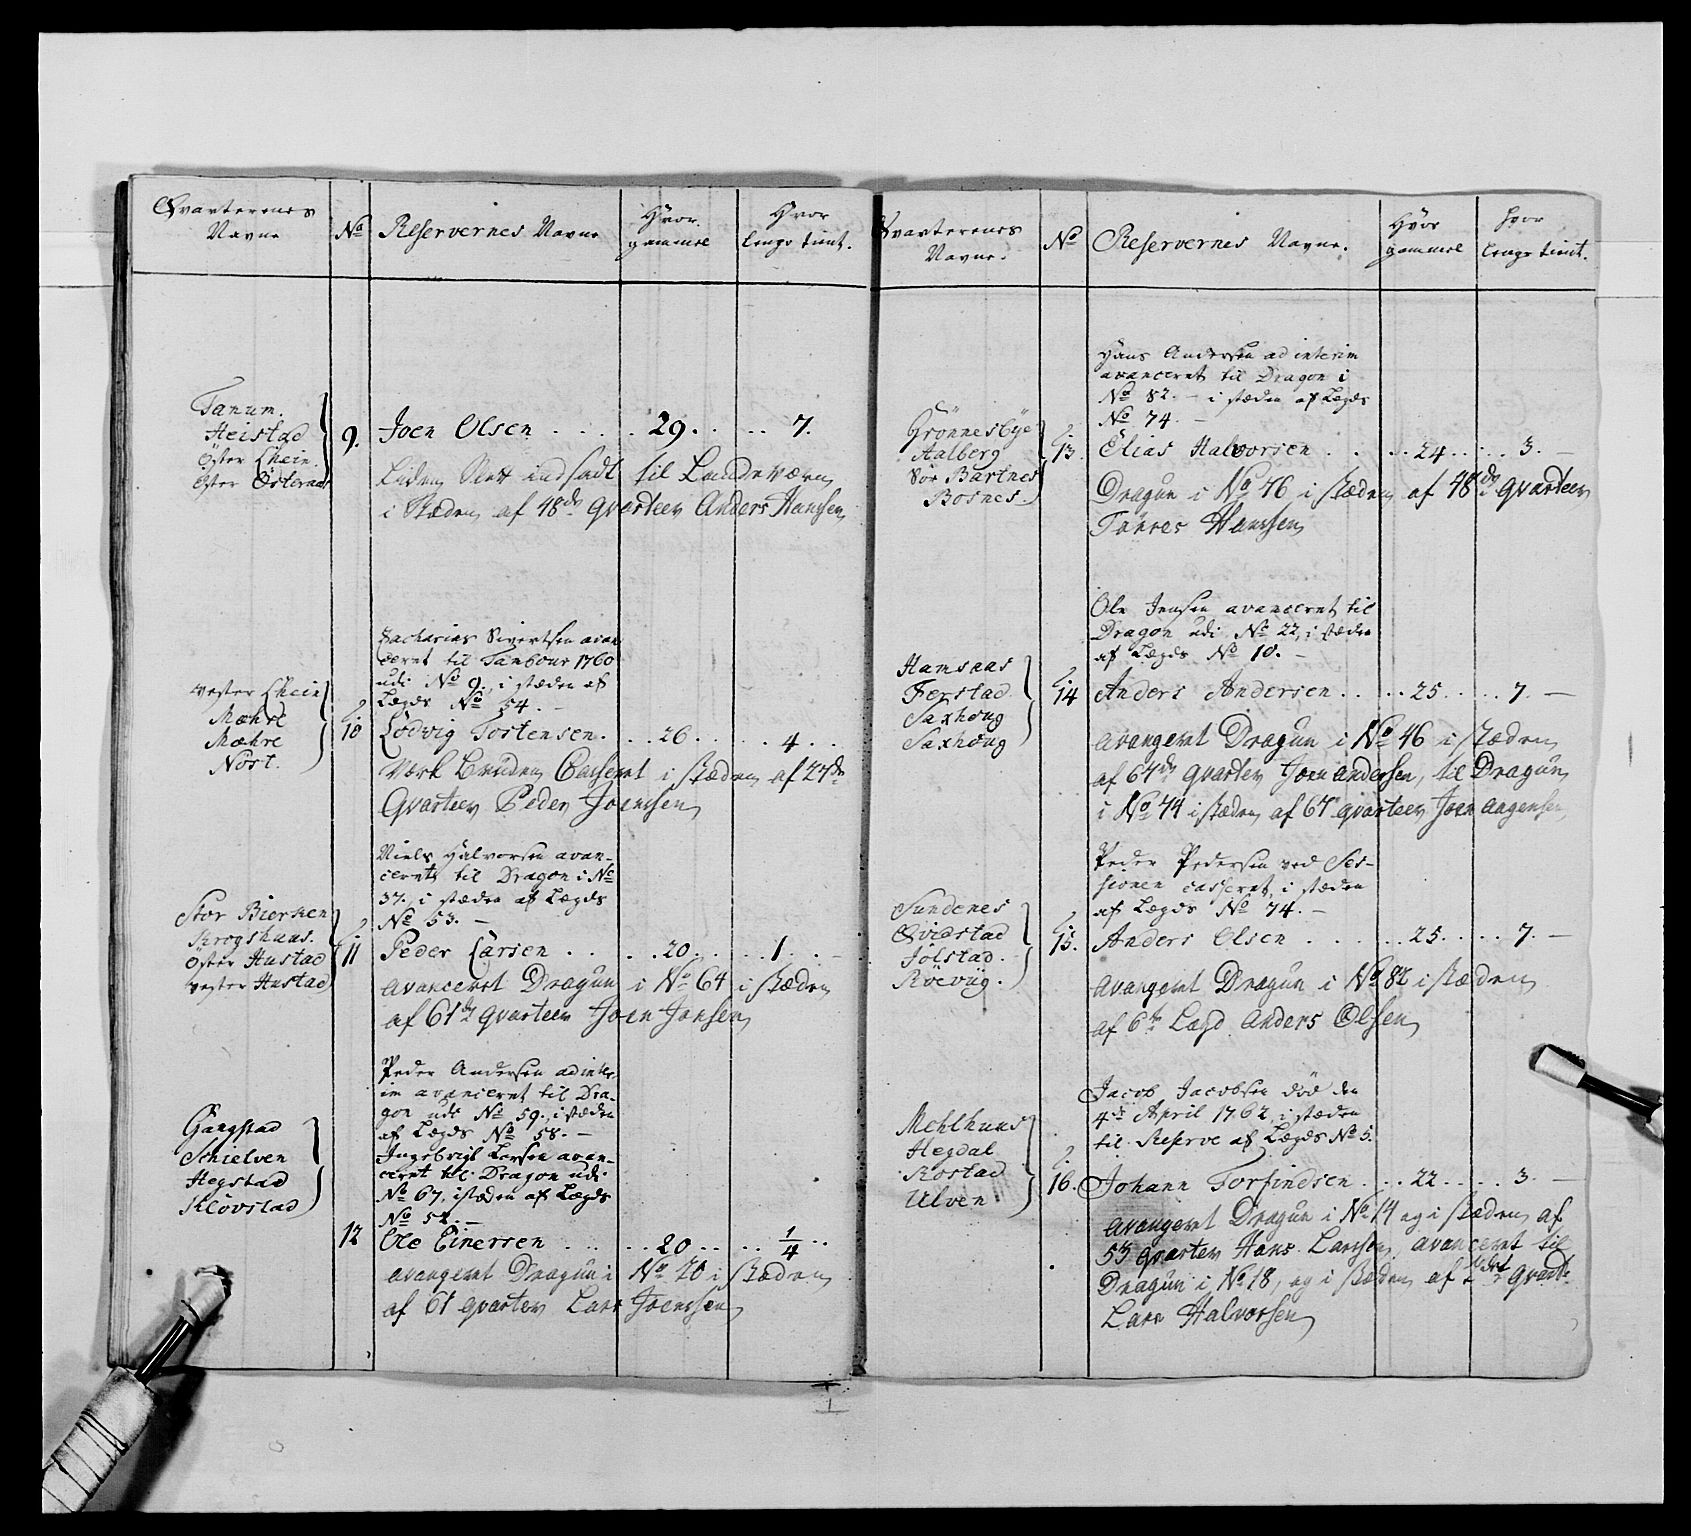 Qvarterernes
Navne
No
Reservernes Navne
Hvor
gammel
Hvor
lenge tient.
Tanum.
Heistad
Öster Lhein.
Öster Österaas
9.
Joen Olsen . . . . 29. . . . 7.
Liden Slett indsadt til Landeværn
i Stæden af 48de qvarteer Anders Hanssen
Zacharias Sivertsen avan
ceret til Tambour 1760
udi No 9., i stæden af
Lægds No 54. –
Vester Lhein
Mæhre
Mæhre
Nört.
10
Lodvig Tostensen. . . 26. . . . 4. .
Casseret i stæden af 27de
Qvarteer Peder Joenssen
Niels Halvorsen avan-
ceret til Dragon i No
37., i stæden af Lægds
No 53. –
Stor Bierken
Krogshuus.
Öster Hustad
Vester Hustad
11
Peder Larsen . . . . 20. . . . 1. . –
avanceret Dragun i No 64 i stæden
af 61de qvarteer Joen Jonsen
Peder Andersen ad inter-
im avanceret til Dra-
gon udi No 59., i stæden
af Lægds No 58. –
Ingebrigt Larsen avan-
ceret til Dragon udi
No 67, i stæden af Lægds
No 52. –
Gangstad
Schielven
Hegstad
Klövstad
12
Ole Einersen . . . . 20. . . . 1/4 . .
avangeret Dragun i No 20 i stæden
af 61 qvarter Lars Joenssen
Qvarterernes
Navne.
No
Reservernes Navne.
Hvor
gammel
Hvor
lenge tient.
Hans Andersen ad interim
avanceret til Dragon i
No 82. – i stæden af Lægds
No 74. –
Grönnesbye
Aalberg
Sör Bartnes
Bosnes.
13.
Elias Halvorsen . . . . 24. . . . 3. –
Dragun i No 46 i stæden af 48de qvarteer
Törres Hanssen
Ole Jensen avanceret til
Dragon udi No 22, i stæden
af Lægds No 10. –
Hamsaas
Ferstad.
Saxhoug
Saxhoug
14
Anders Andersen . . . . 25. . . . 7. –
avangeret Dragun i No 46 i stæden
af 64de qvarter Joen Andersen, til Dragun
i No 44 i stæden af 67 qvarteer Joen Aagensen
Peder Pedersen ved Ses-
sionen casseret, i stæden
af Lægds No 74. –
Sundenes
Qvidstad
Jölstad.
Röevüg.
15.
Anders Olsen . . . . 25. . . . 7. –
avangeret Dragun i No 82 i stæden
af 6te Lægd Anders Olsen
Jacob Jacobsen död den
4de April 1762, i stæden
til Reserve af Lægds No 5.
Mehlhuus
Hegdal
Rostad
Ulven
16.
Johann Torfindsen . . . 22. . . . 3. –
avangeret Dragun i No 14 og i stæden af
53 qvarter Hans Larssen, avanceret til
Dragun i No 18, og i stæden af qvart:
Lars Halvorsen